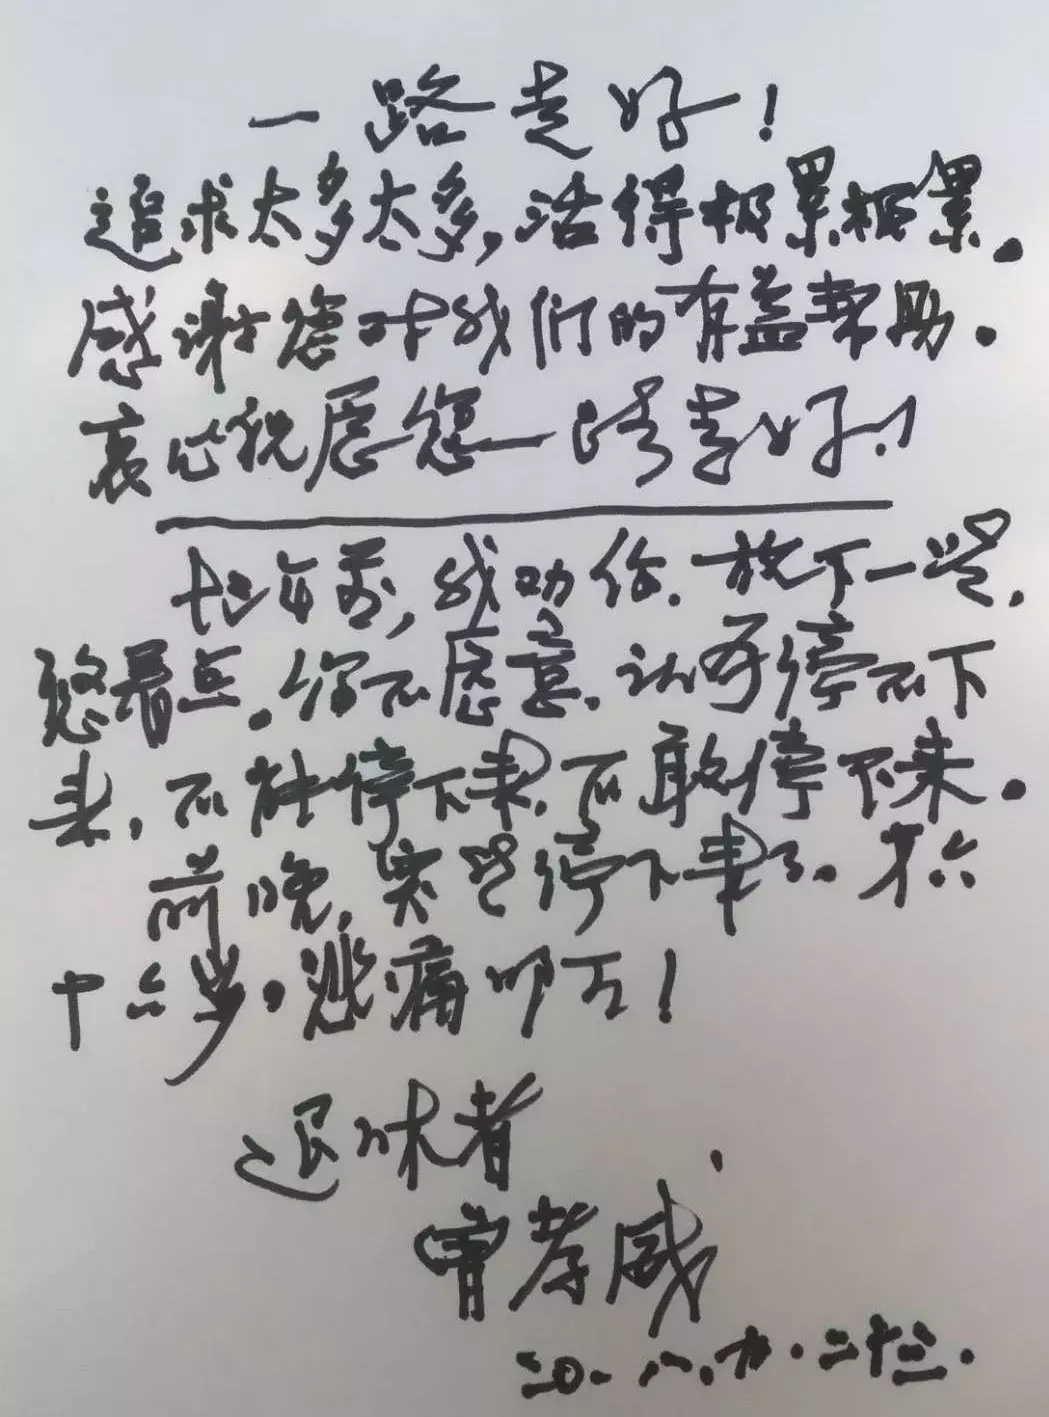 一路走好！
追求太多太多，活得极累极累。
感谢您对我们的有益帮助。
衷心祝愿您一路走好！
十年前，我劝你．放下一些．
悠着点．你不愿意．认为停不下
来，不能停下来．不敢停下来。
前晚，突然停下来了．才六
十六岁，悲痛叩上！
退休者
曾孝威
二0一八．九．二十三．